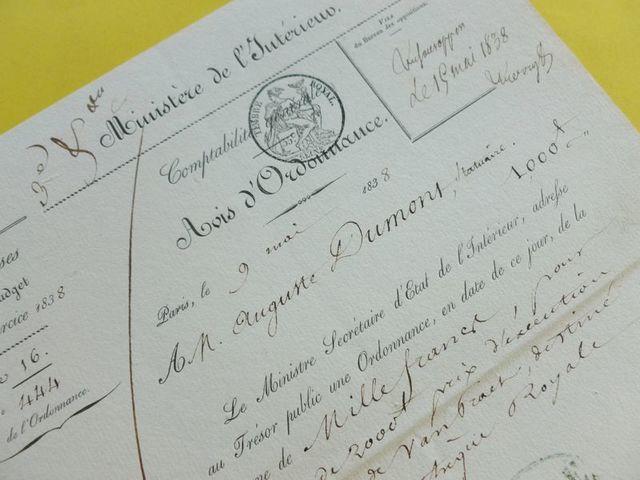 Ministère de l'Intérieur.
Visa
du Bureau des oppositions.
Vu sans opp.on
Le 19 mai 1838
Comptabilité
TIMBRE ROYAL
Avis d'Ordonnance.
Paris, le 9 mai 1838
A M. Auguste Dumont, Statuaire. 1000 f "
Le Ministre Secrétaire d'État de l'Intérieur, adresse
au Trésor public une Ordonnance, en date de ce jour, de la
me de Mille francs, pour
de 2000 f prix d'exécution
de Van Praet, destiné
Royale
ses
udget
rcice 1838
16.
444
de l'Ordonnance.